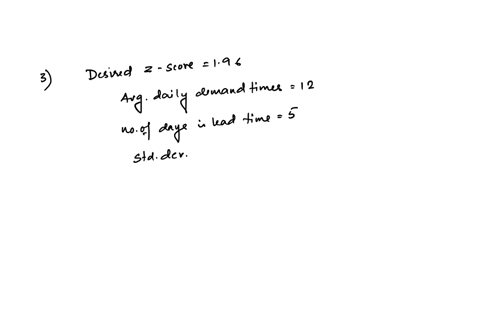 3) Desired z-score = 1.96
Avg. daily demand times = 12
no. of days in lead time = 5
std. dev.